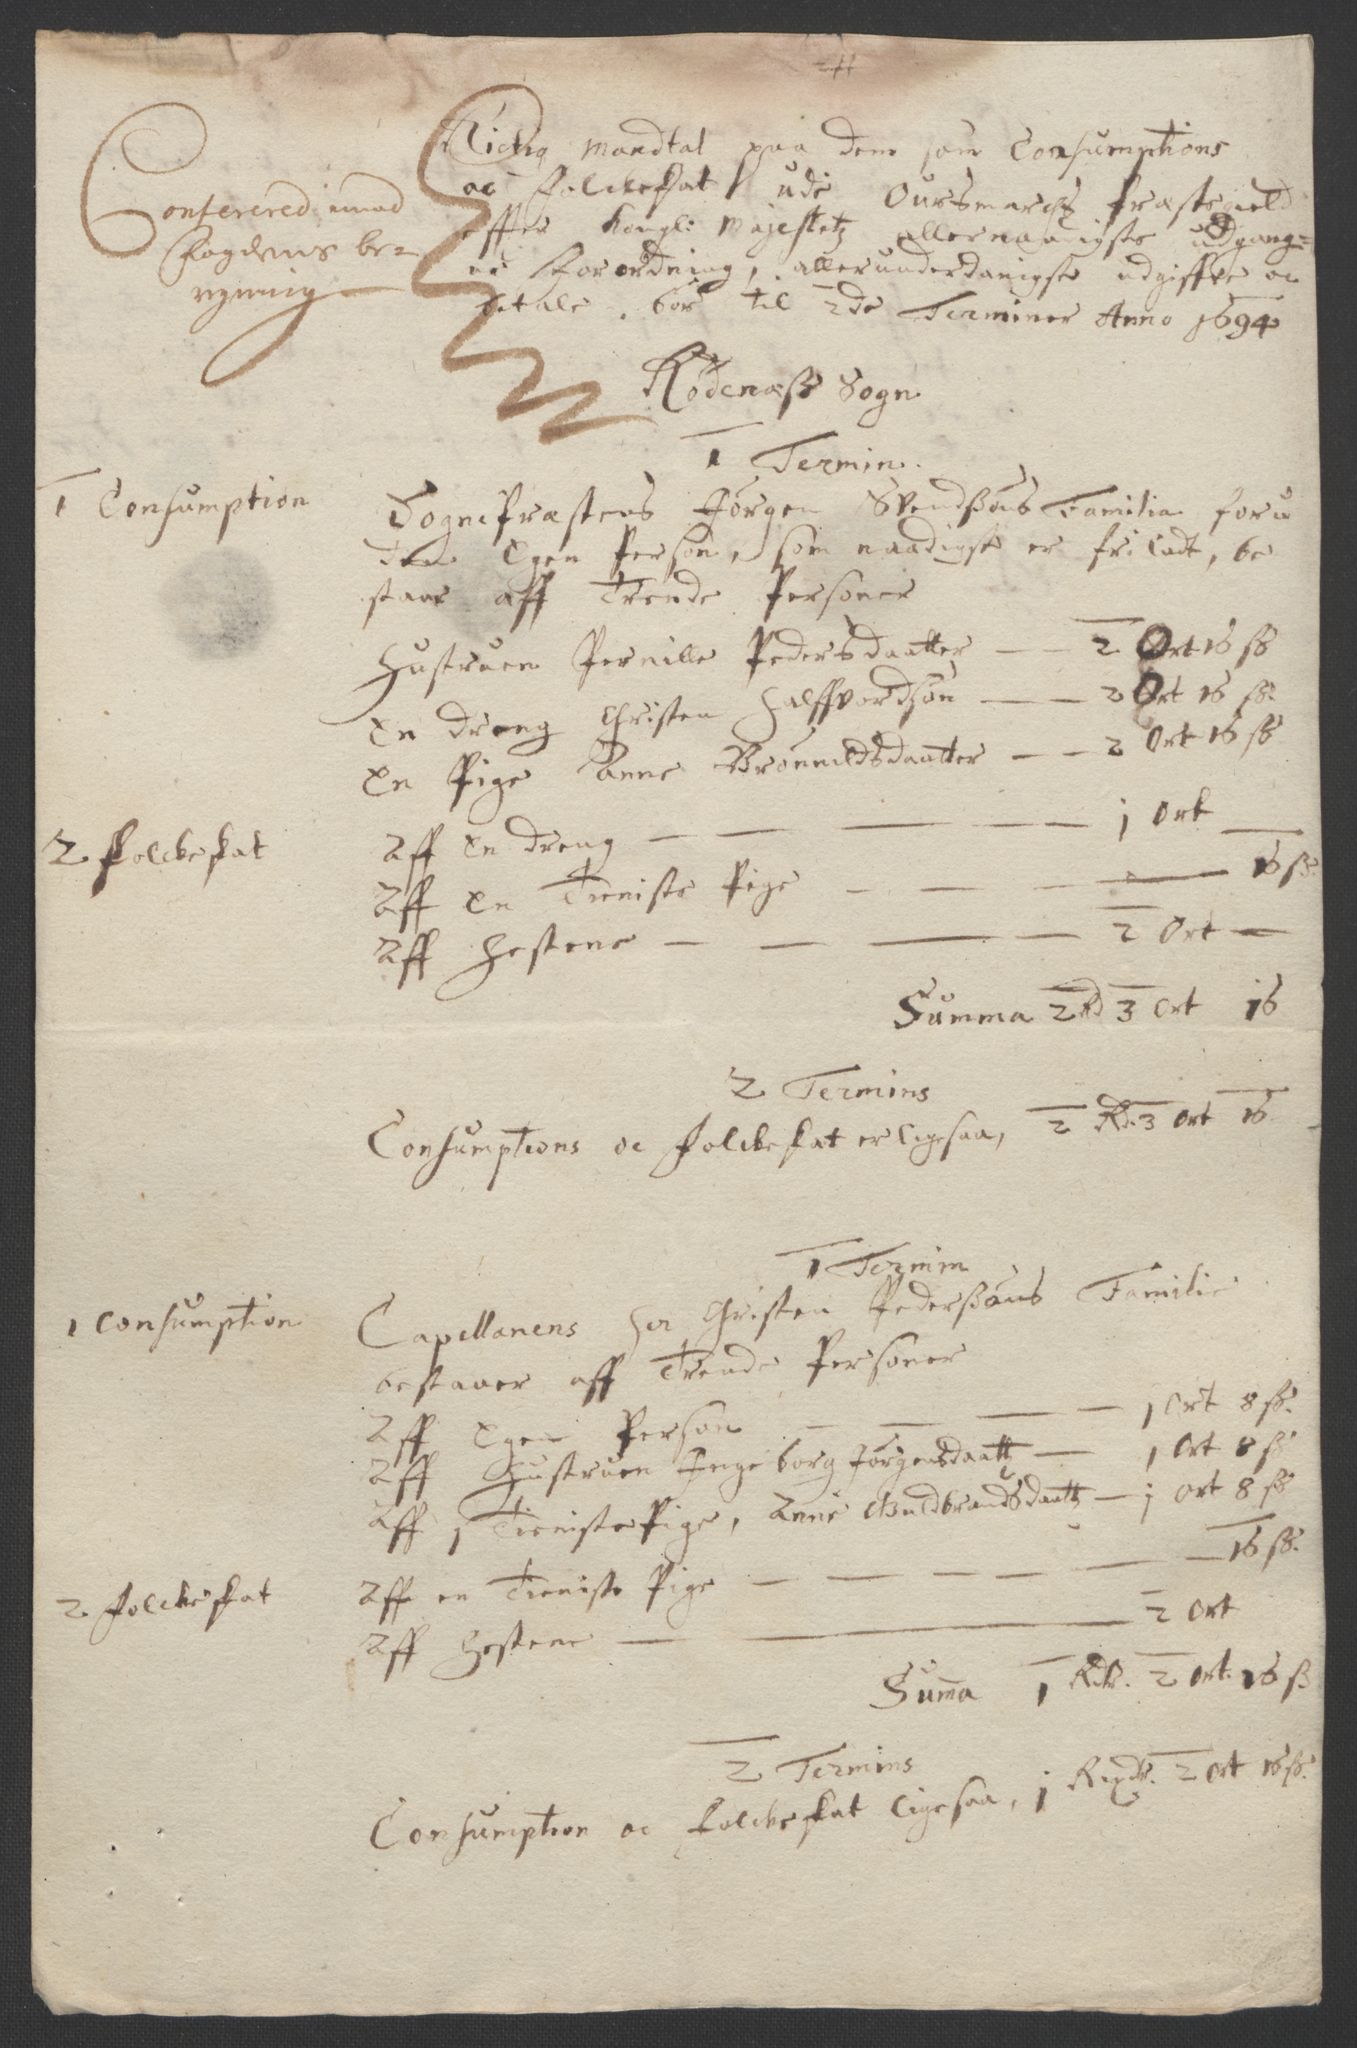 Rictig Mandtal paa dem som Consumptions
oc folckeskat udi Oursmarchs Præstegield
effter Kongl: Majestetz allernaadigste udgang=
ne Forordning, allerunderdanigst udgiffve oc
betale, bör til 2de Terminer Anno 1694
Conferered imod
Fogdens be=
regning
Rödenæss Sogn
1 Termin.
1 Consumption
Sognepræstens Jörgen Svendsöns Familia foru
den Egen Person, som naadigst er friladt, be
staar aff Trende Personer
Hustruen Pernille Pedersdaatter — 2 Ort 16 ss
En dreng Christen Halffvordsön — 2 Ort 16 ss.
En Pige Anne Brönnildsdaatter — 2 Ort 16 ss
2 folckeskat
Aff En dreng — 1 Ort
Aff En Tieniste Pige — 16 ss.
Aff Hestene — 2 Ort —
Summa 2 Rd 3 Ort 16
2 Termins
Consumptions oc folckeskat er ligesaa, 2 Rd. 3 Ort 16
1 Termin
1 Consumption
Capellanens Her Christen Pederssöns Familie
bestaaer aff Trende Personer
Aff Egen Person — 1 Ort 8 ss.
Aff Hustruen Ingeborg Jörgensdaatt — 1 Ort 8 ss
Aff 1 Tieniste Pige, Anne Guldbrandsdaatt — 1 Ort 8 ss
2 folckeskat
Aff en Tieniste Pige — 16 ss.
Aff Hestene — 2 Ort
Summa 1 Rdr. 2 Ort. 16 ss
2 Termins
Consumption oc folckeskat ligesaa, 1 Rixdr. 2 Ort 16 ss.